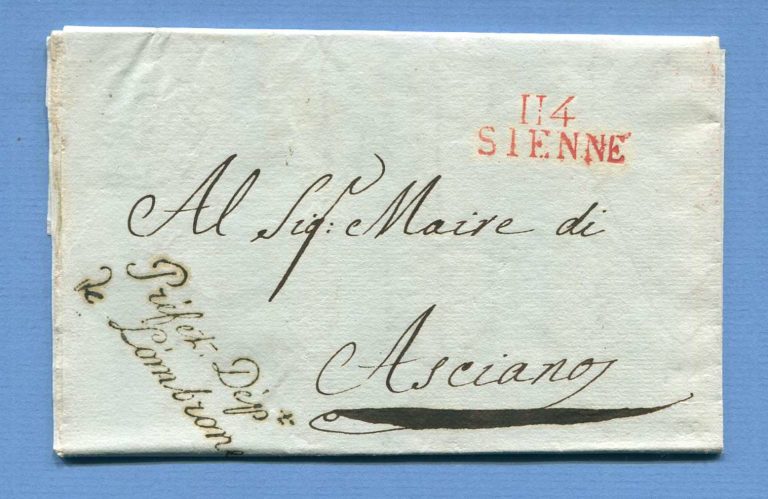 114
SIENNE
Al Sig.r: Maire di
Asciano
Préfet. Dép.t
de L'ombrone